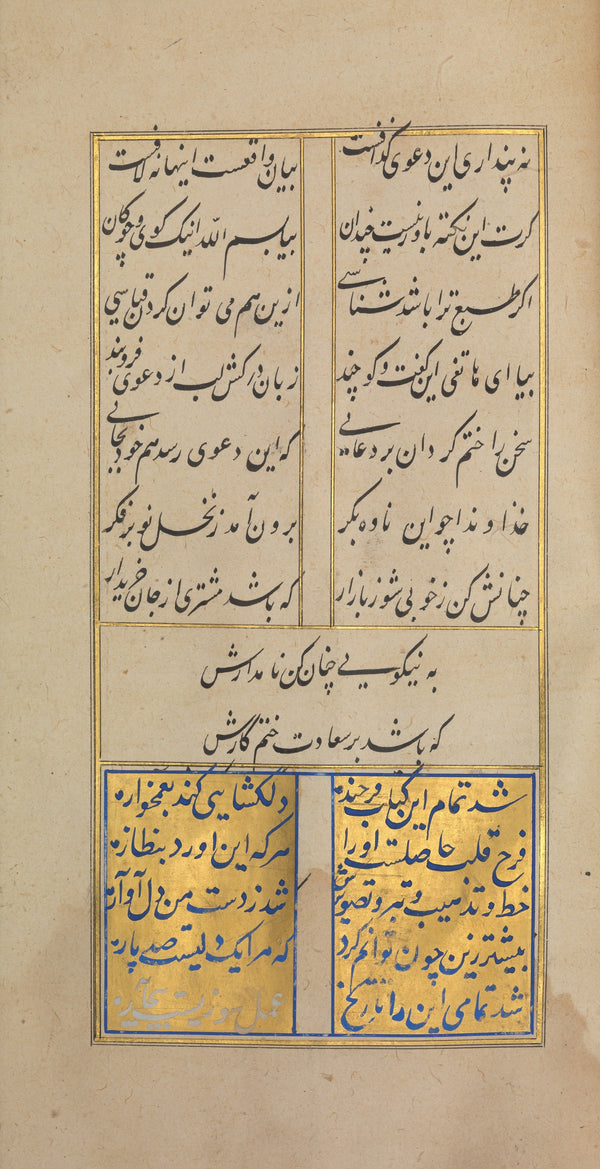 نه پنداری این دعوی گزافست
بیان واقعست اینها نه لافست
کرت این نکته باور نیست چندان
بیا بسم الله اینک کوی و چوکان
اکر طبع ترا باشد شناسی
ازین هم می توان کردن قیاسی
بیا ای هاتفی این کفت و کو چند
زبان درکش لب از دعوی فروبند
سخن را ختم کردان بر دعایی
که این دعوی رسد هم خود بجایی
خداوندا چو این ناوه بکر
برون آمد ز نخل نوبر فکر
چنانش کن ز خوبی شور بازار
که باشد مشتری از جان خریدار
به نیکویی چنان کن نامدارش
که باشد بر سعادت ختم کارش
شد تمام این کتاب فرخنده
دلکشایی کند بغمخواره
فرح قلب حاصلست او را
هر که این آورد بنظاره
خط و تذهیب و تصویرش
شد ز دست من دل آواره
بیشتر زین چون توانم کرد
که مرا یک دلیست صد پاره
شد تمامی این را تاریخ
عمل سوزنیست بیچاره